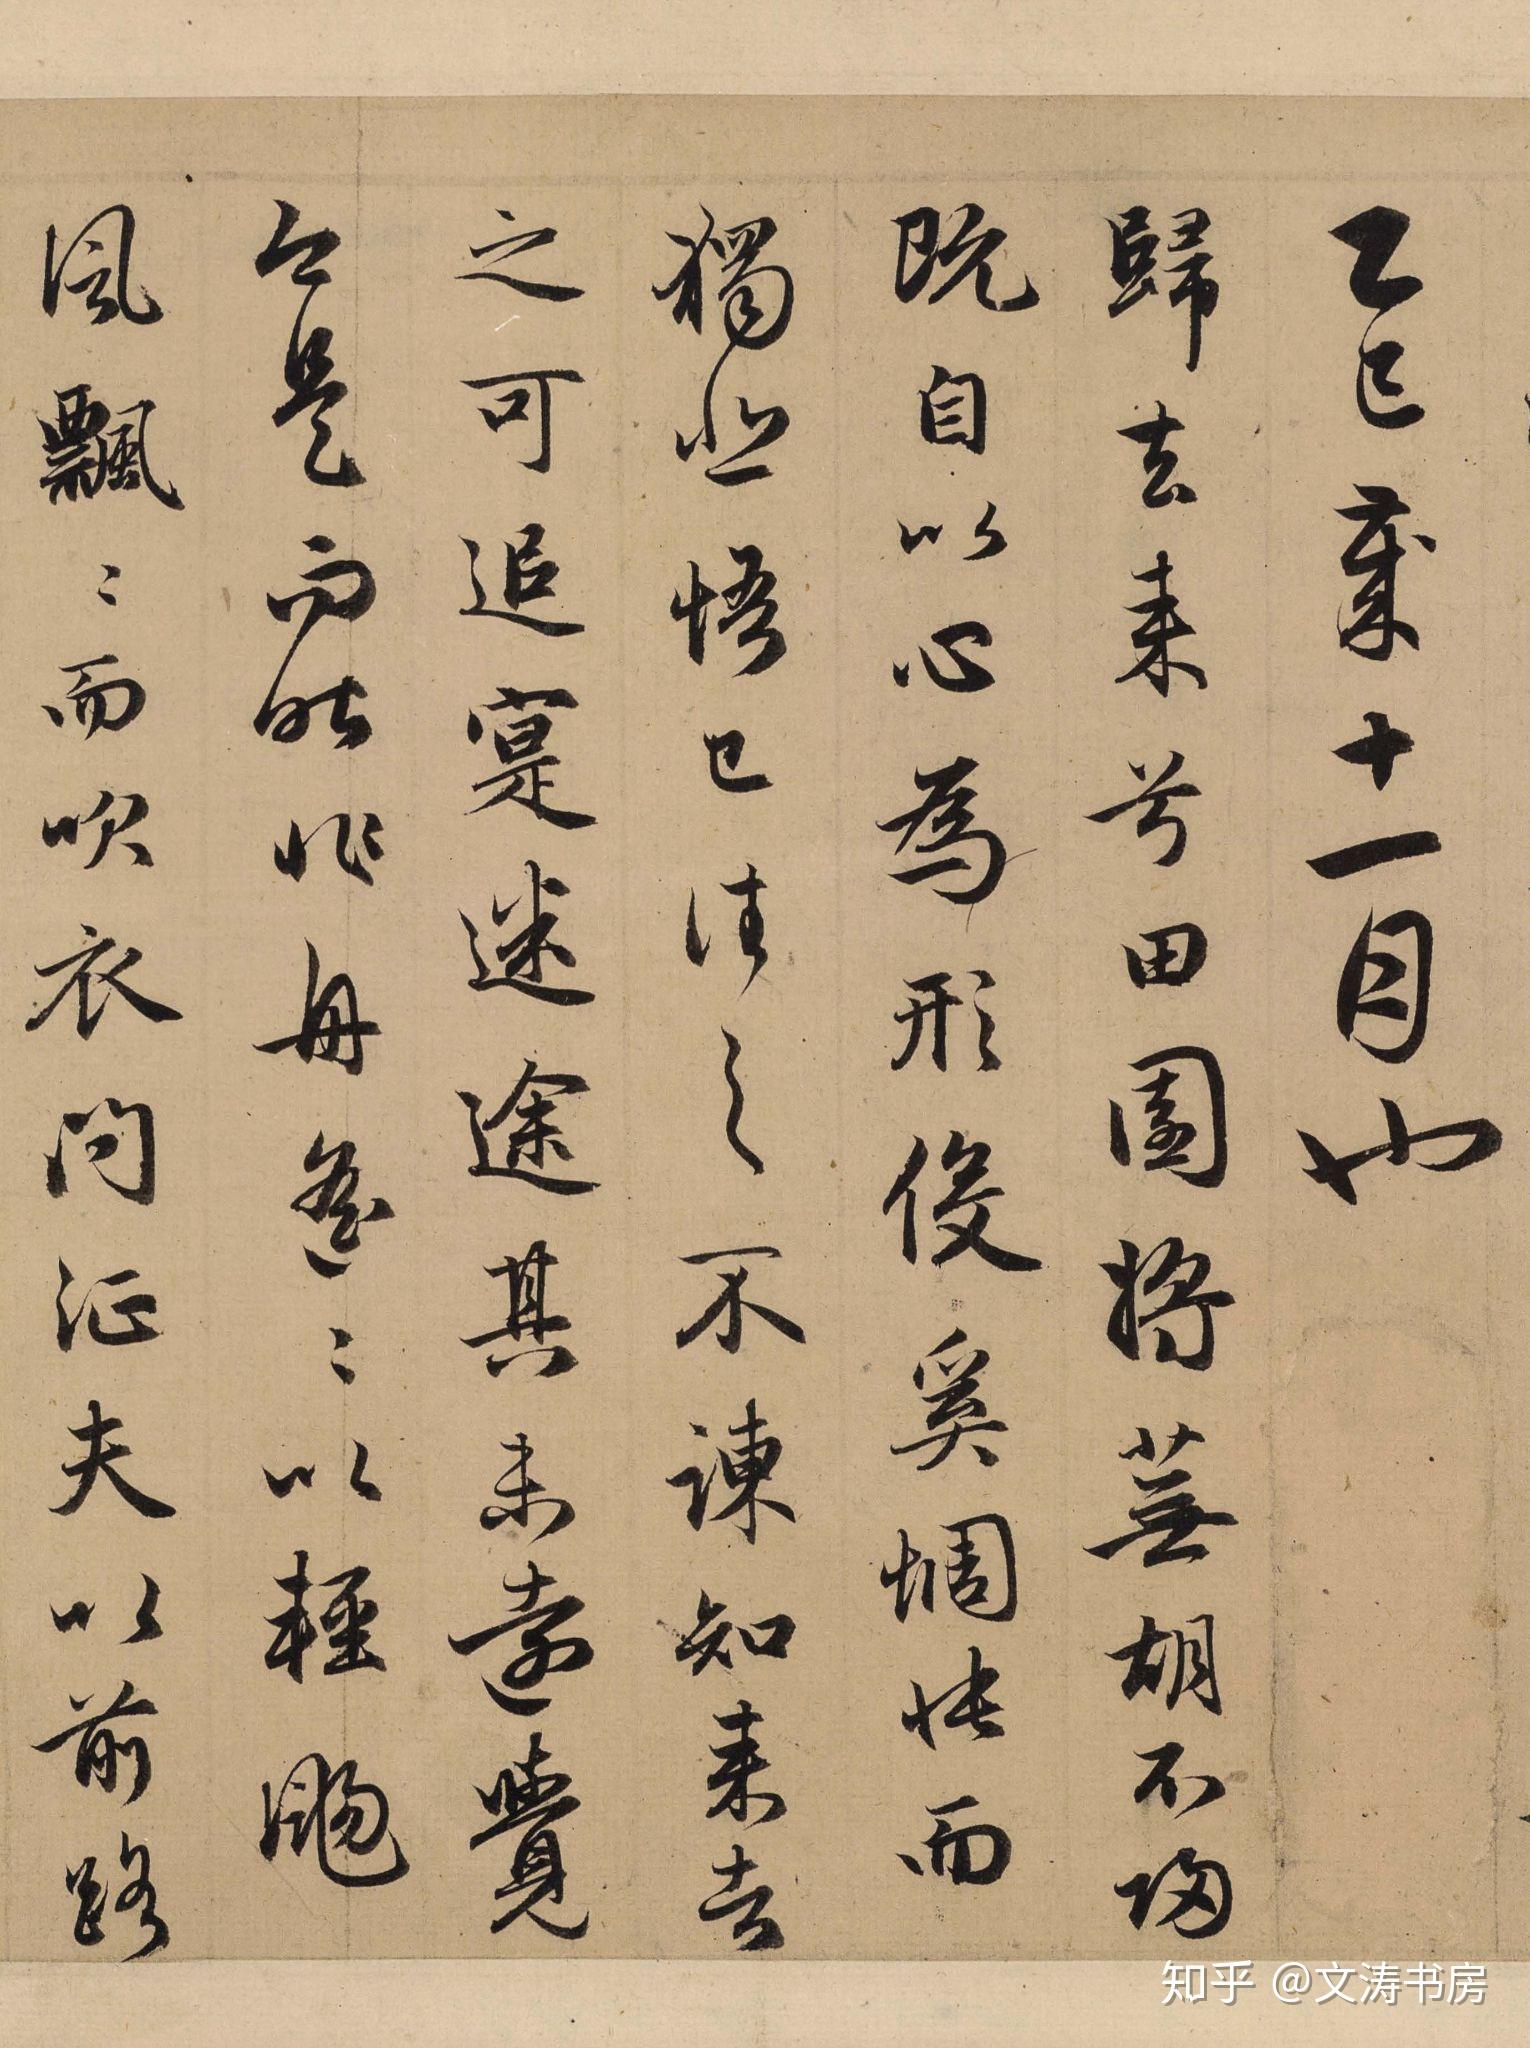 乙巳歲十一月也
歸去来兮田園將蕪胡不歸
既自以心為形役奚惆悵而
獨悲悟已往之不諫知来者
之可追寔迷途其未遠覺
今是而昨非舟遙〻以輕颺
風飄〻而吹衣問征夫以前路
知乎 @文涛书房